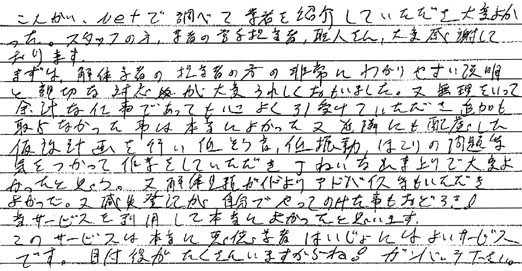 こんかい、netで調べて業者を紹介していただき大変よか
った。スタッフの方、業者の営業担当者、職人さん、大変感謝して
おります。
まずは、解体業者の担当者の方の非常にわかりやすい説明
と親切な対応が大変うれしくおもいました。又無理をいって
余計な仕事であっても心よく引受けていただき追加も
取らなかった事は本当によかった又近隣にも配慮した
仮設計画を行い低そう音、低振動、ほこりの問題等
気をつかって仕事をしていただき丁ねいな仕上りで大変よ
かったと思う。又解体見積り
よかった。又滅失登記が自分でやって
当サービスを利用して本当によかったと思います。
このサービスは本当に悪徳業者はいじょにはよいサービス
です。目付役がたくさんいますからね。ガンバッテ下さい。